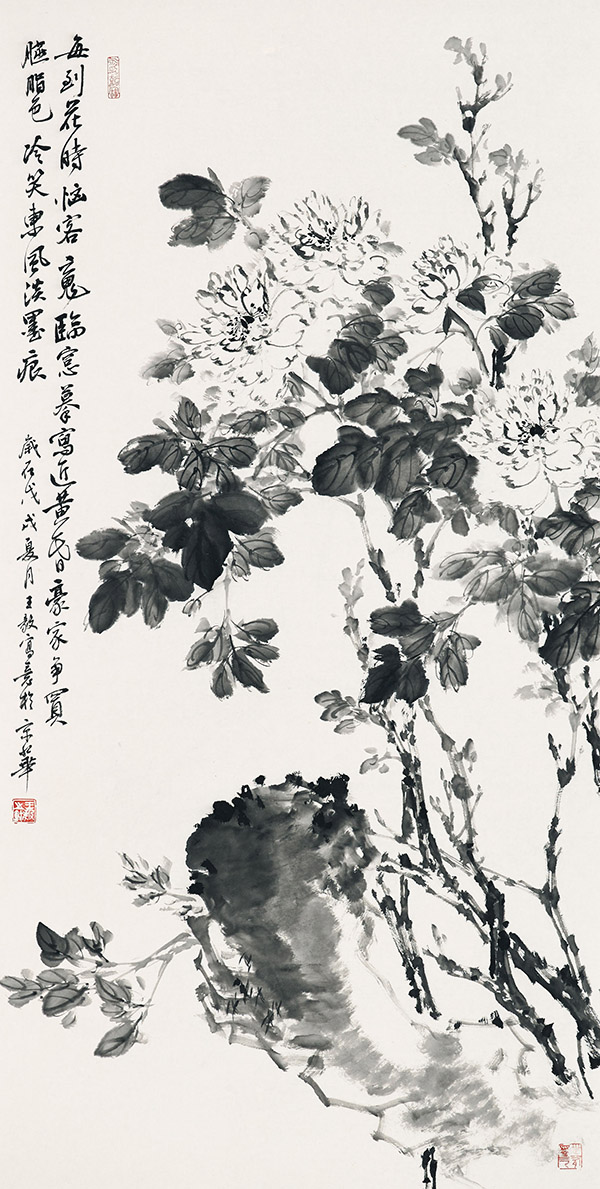 每到花時惱客魂臨窓摹寫近黃昏豪家爭買
胭脂色冷笑東風淡墨痕
歲在戊戌夏月王敩寫意於京華